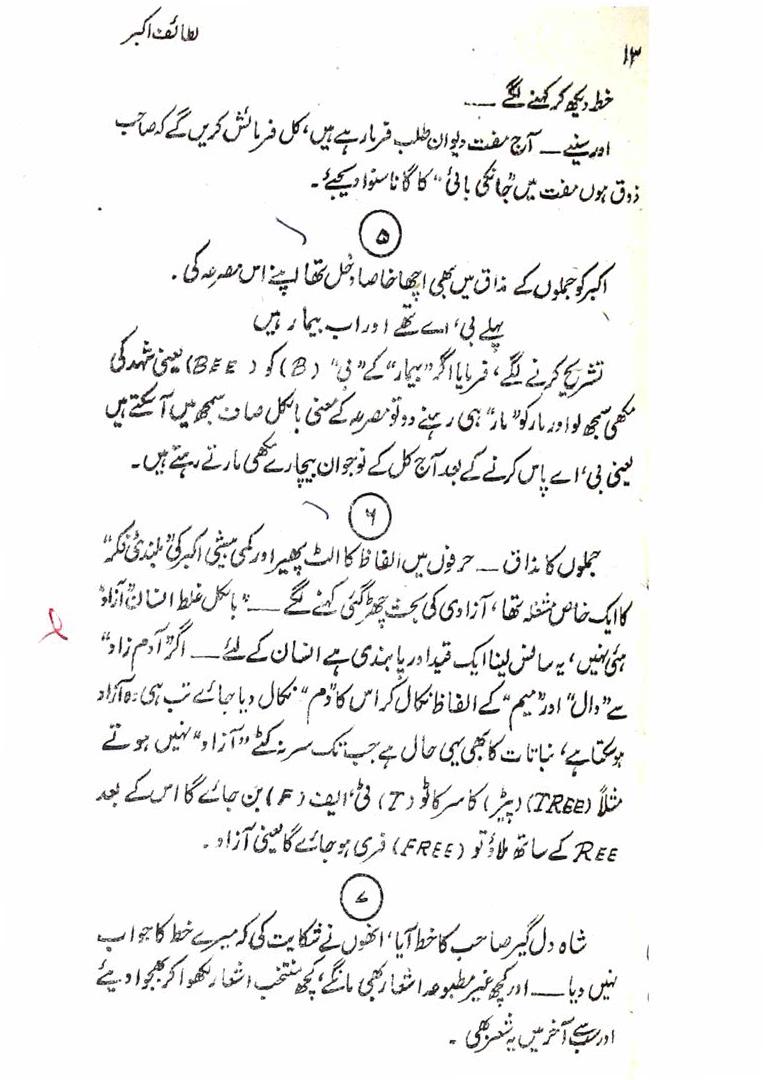 لطائف اکبر
۱۳
خط دیکھ کر کہنے لگے ــــ
اور سنیے ــ آج مفت دیوان طلب فرما رہے ہیں، کل فرمائش کریں گے کہ صاحب
ذوق ہوں مفت میں "جانکی بائی" کا گانا سنوا دیجئے۔
۵
اکبر کو جملوں کے مذاق میں بھی اچھا خاصا دخل تھا اپنے اس مصرعہ کی۔
پہلے بی، اے تھے اور اب بیمار ہیں
تشریح کرنے لگے، فرمایا اگر "بیمار" کے "بی" (B) کو (BEE) یعنی شہد کی
مکھی سمجھ لو اور مار کو "مار" ہی رہنے دو تو مصرعہ کے معنی بالکل صاف سمجھ میں آ سکتے ہیں
یعنی بی، اے پاس کرنے کے بعد آج کل کے نوجوان بیچارے مکھی مارتے رہتے ہیں۔
۶
جملوں کا مذاق ــ حرفوں میں الفاظ کا الٹ پھیر اور کمی بیشی اکبر کی "بلندئ فکر"
کا ایک خاص مشغلہ تھا، آزادی کی بحث چھڑ گئی کہنے لگے ــــ "بالکل غلط انسان "آزاد"
ہی نہیں، یہ سانس لینا ایک قید اور پابندی ہے انسان کے لئے ــــ اگر "آدم زاد"
سے "دال" اور "میم" کے الفاظ نکال کر اس کا "دم" نکال دیا جائے تب ہی وہ آزاد
ہو سکتا ہے، نباتات کا بھی یہی حال ہے جب تک سر نہ کٹے "آزاد" نہیں ہوتے
مثلاً (TREE) (پیڑ) کا سر کاٹو (T) ٹی، ایف (F) بن جائے گا اس کے بعد
REE کے ساتھ ملاؤ تو (FREE) فری ہو جائے گا یعنی آزاد۔
۷
شاہ دل گیر صاحب کا خط آیا، انھوں نے شکایت کی کہ میرے خط کا جواب
نہیں دیا ــــ اور کچھ غیر مطبوعہ اشعار بھی مانگے، کچھ منتخب اشعار لکھوا کر بھجوا دیئے
اور سب سے آخر میں یہ شعر بھی۔